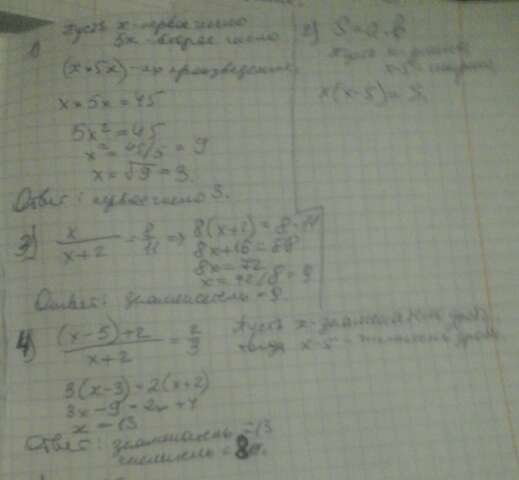 1) пусть x - первое число
5x - второе число
(x * 5x) - их произведение
x * 5x = 45
5x² = 45
x² = 45/5 = 9
x = √9 = 3
Ответ: первое число 3.
2) S = a · b
x(x-5) =
3) x / x+2 = 8/11 => 8(x+2) = 8 · 11
8x+16 = 88
8x = 72
x = 72/8 = 9
Ответ: знаменатель = 9
4) (x-5)+2 / x+2 = 2/3
пусть x - знаменатель дроби
тогда x-5 - числитель дроби
3(x-3) = 2(x+2)
3x-9 = 2x+4
x = 13
Ответ: знаменатель = 13
числитель = 8